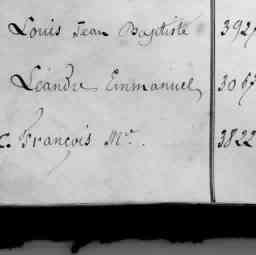 Louis Jean Baptiste 392
Léandre Emmanuel 3067
c. François Mie. 3822